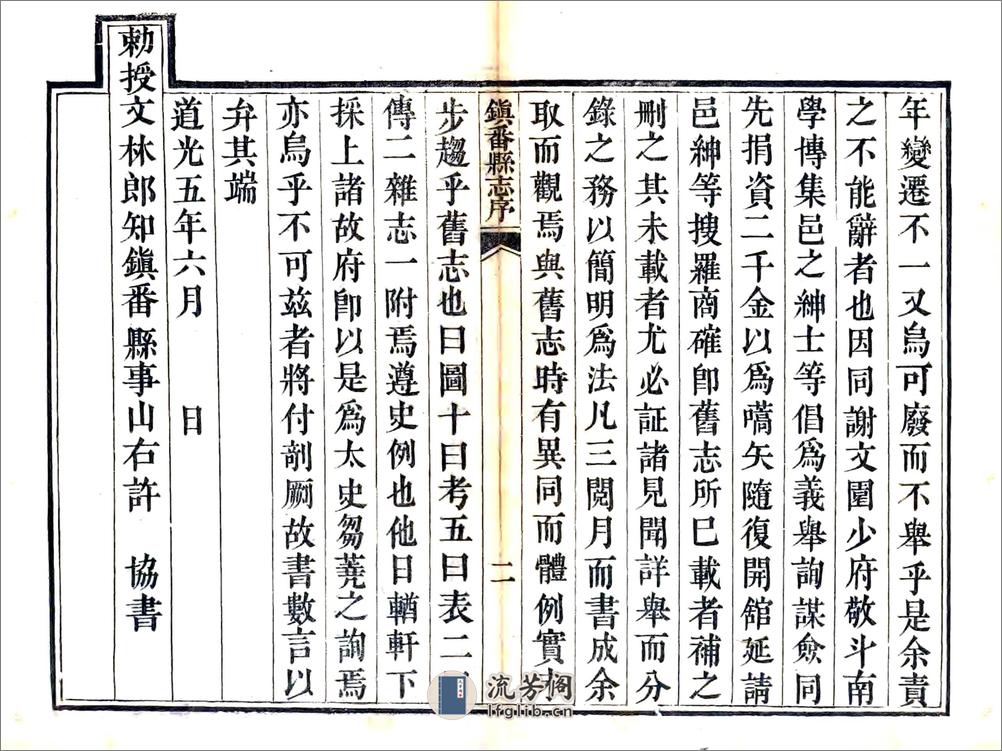 年變遷不一又烏可廢而不舉乎是余責
之不能辭者也因同謝文圃少府敬斗南
學博集邑之紳士等倡爲義舉詢謀僉同
先捐資二千金以爲嚆矢隨復開館延請
邑紳等搜羅商確卽舊志所已載者補之
刪之其未載者尤必証諸見聞詳舉而分
錄之務以簡明爲法凡三閱月而書成余
取而觀焉與舊志時有異同而體例實
鎭番縣志序
二
步趨乎舊志也曰圖十曰考五曰表二
傳二雜志一附焉遵史例也他日輶軒下
採上諸故府卽以是爲太史芻蕘之詢焉
亦烏乎不可茲者將付剞劂故書數言以
弁其端
道光五年六月 日
勅授文林郎知鎭番縣事山右許 協書
流芳閣
lfglib.cn